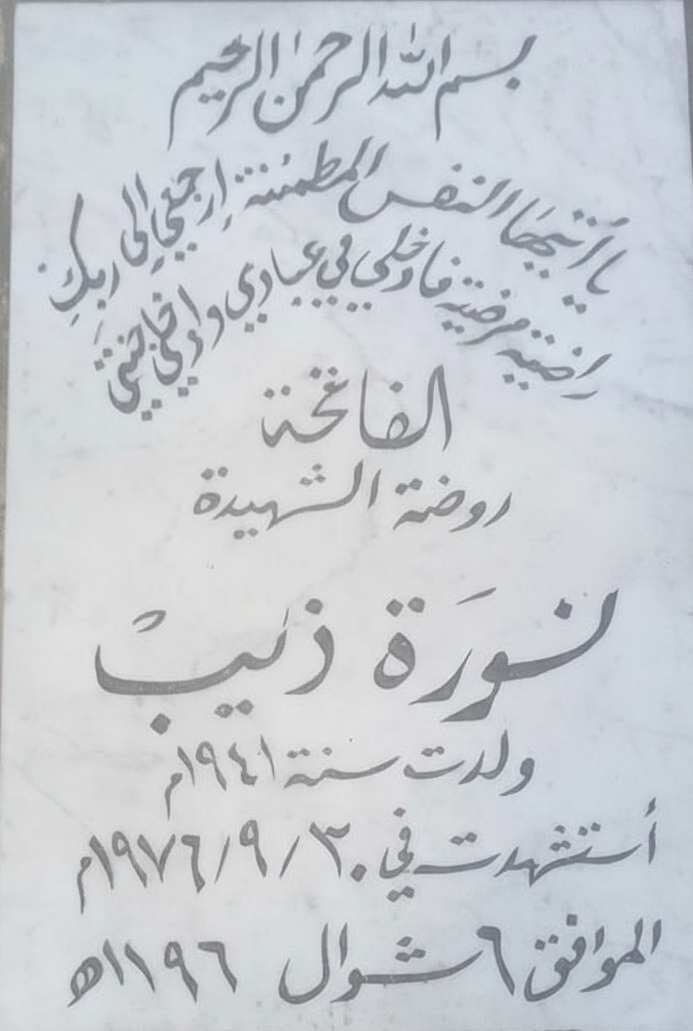 بسم الله الرحمن الرحيم
يا أيتها النفس المطمئنة إرجعي إلى ربك
راضية مرضية فادخلي في عبادي وادخلي جنتي
الفاتحة
روضة الشهيدة
نورة ذيب
ولدت سنة ١٩٤١م
أستشهدت في ٣٠/٩/١٩٧٦م
الموافق ٦ شوال ١١٩٦ه